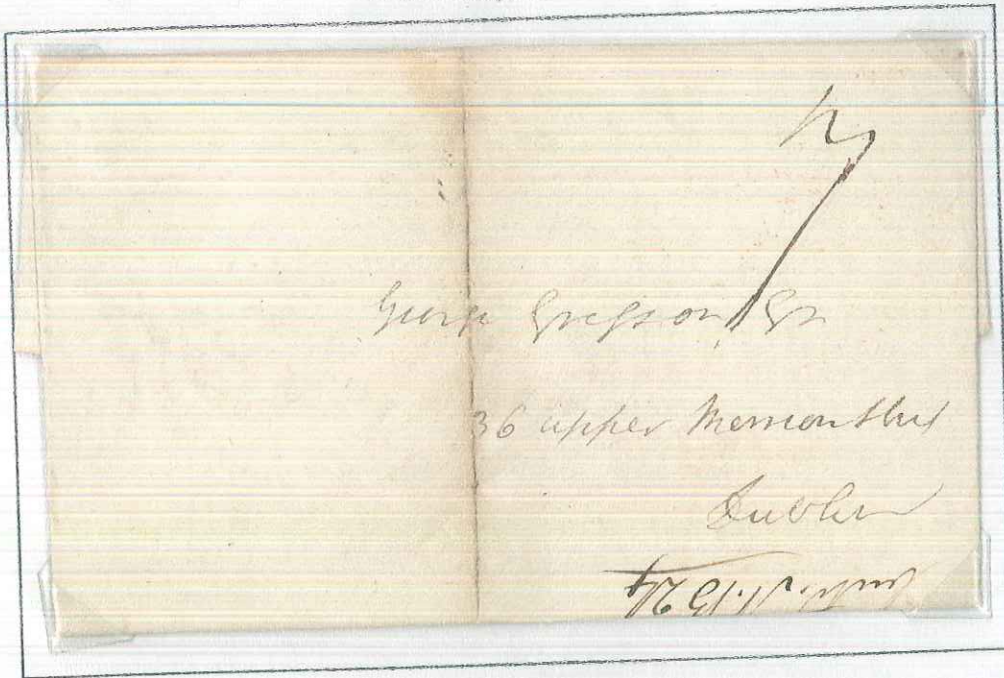 7
George Grepson Esq
36 upper Merrion Street
Dublin